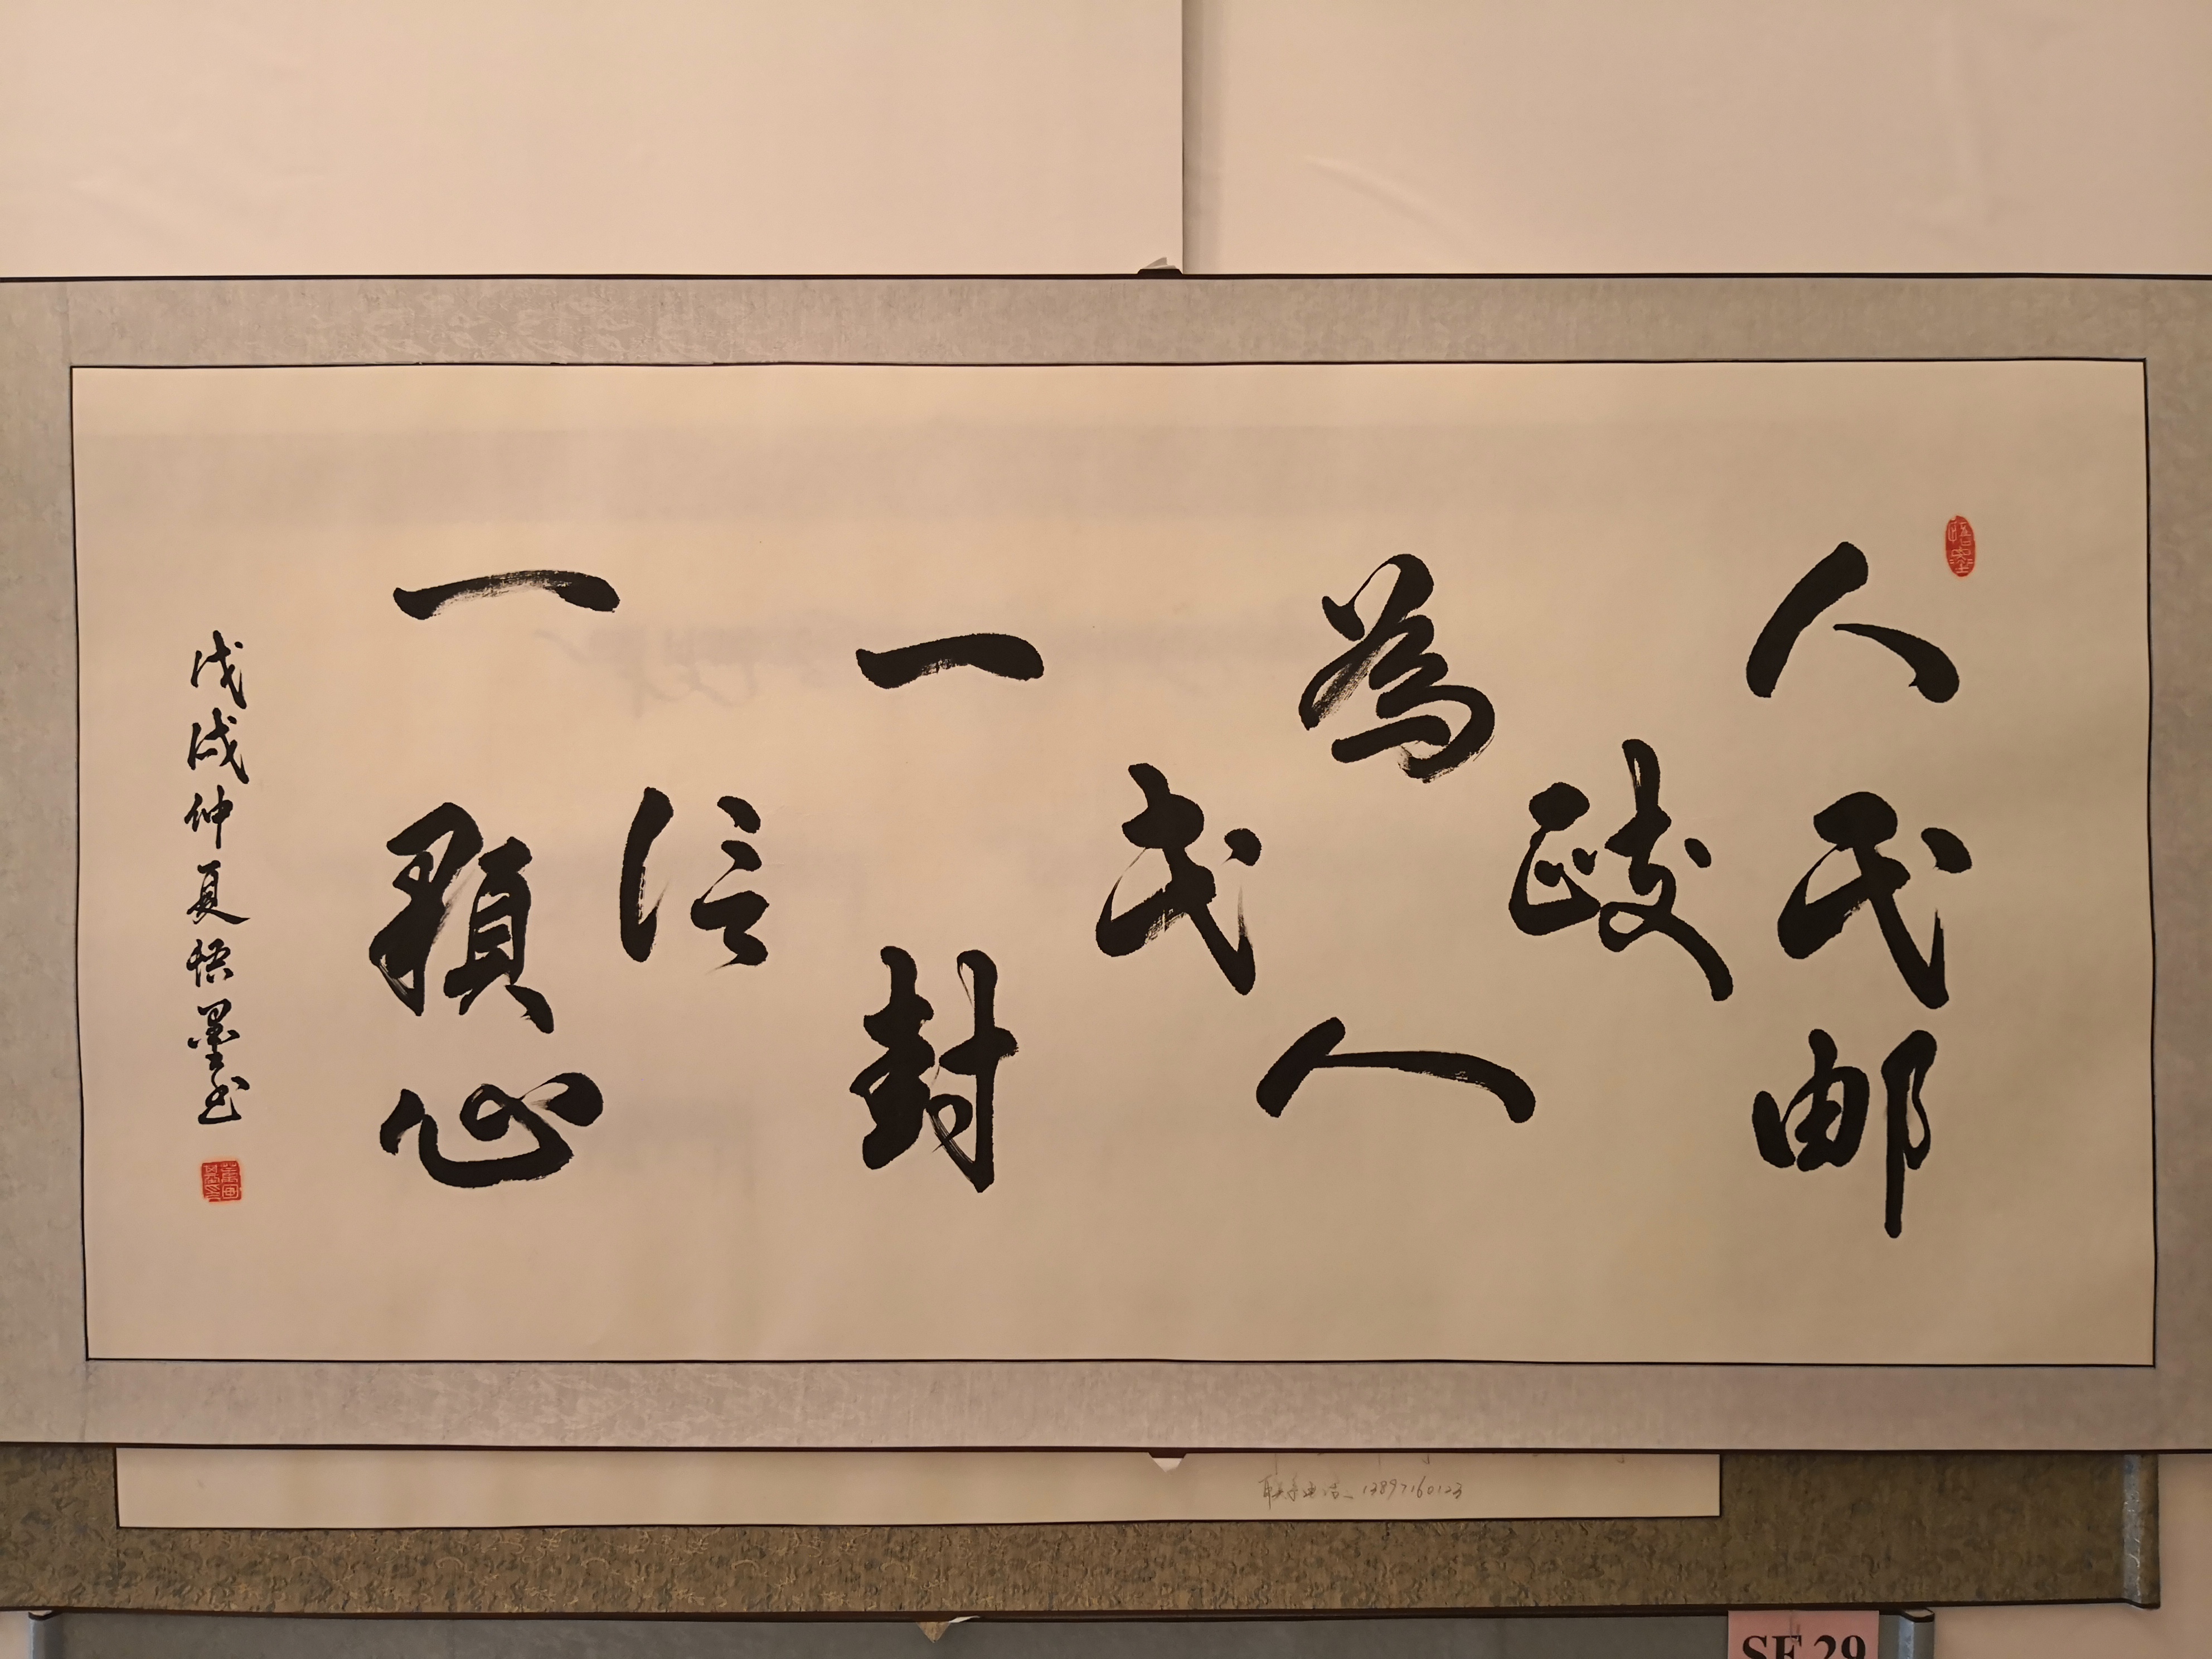 人民邮
政
為人
民
一封
信
一顆心
戊戌仲夏悟墨书
联系电话 13897160123
SF 29